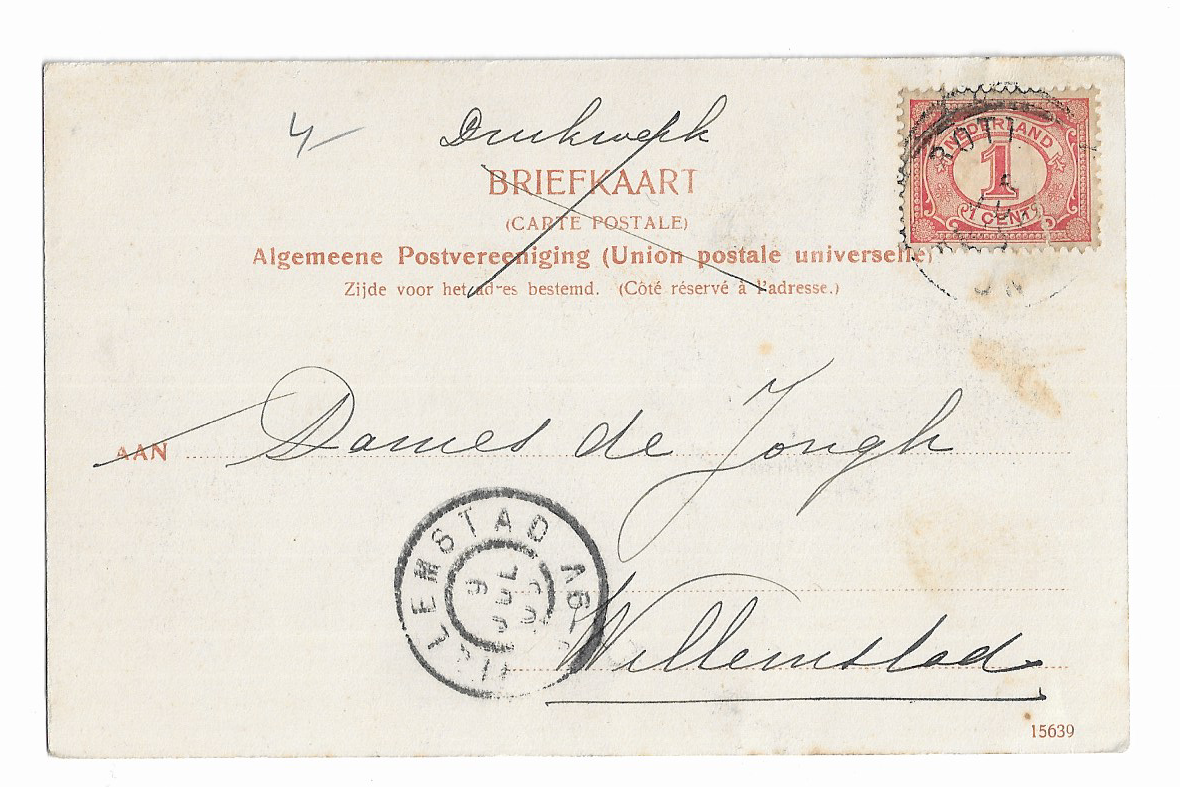 4
Drukwerk
BRIEFKAART
(CARTE POSTALE)
Algemeene Postvereeniging (Union postale universelle)
Zijde voor het adres bestemd. (Côté réservé à l'adresse.)
NEDERLAND
1
1 CENT
AAN Dames de Jongh
WILLEMSTAD
JUL
Willemstad
15639